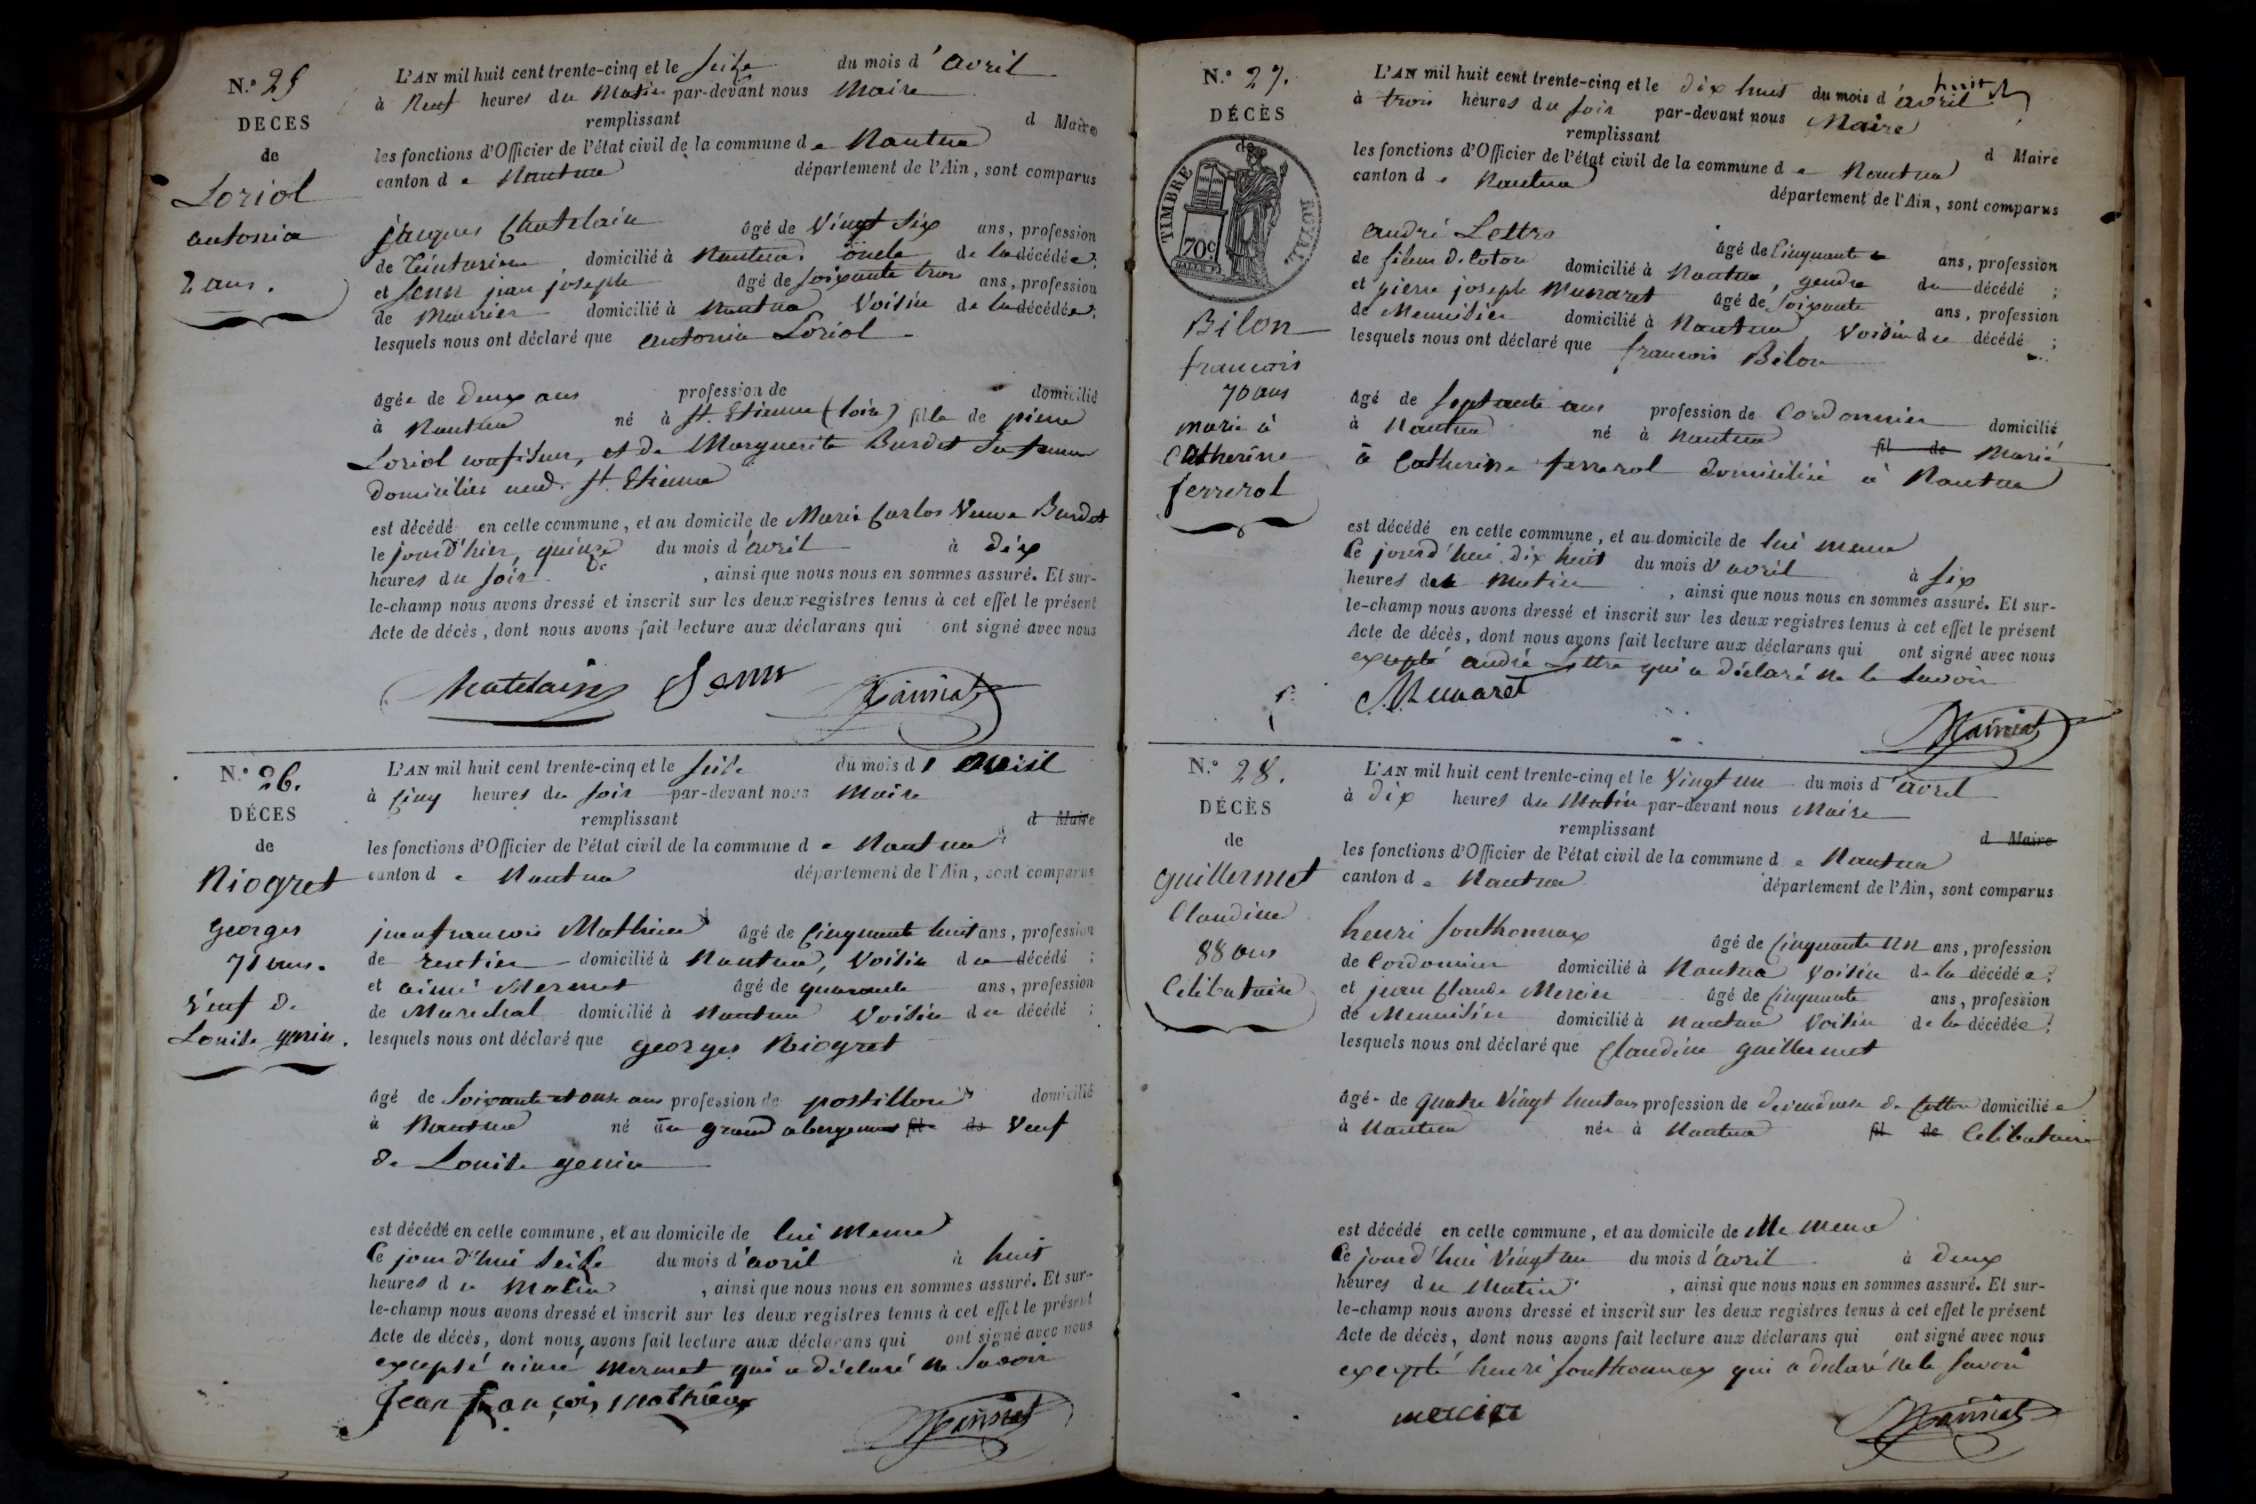 N.º 25
DÉCES
de
Loriol
antonia
2 ans.
L'AN mil huit cent trente-cinq et le seize du mois d'avril
à Neuf heures du Matin par-devant nous Maire
remplissant d Maire
les fonctions d'Officier de l'état civil de la commune de Nantua
canton de Nantua département de l'Ain, sont comparus
jacques Chatelain âgé de Vingt six ans, profession
de teinturier domicilié à Nantua, oncle de la décédée;
et Jenn jean joseph âgé de soixante trois ans, profession
de Meunier domicilié à Nantua Voisin de la décédée;
lesquels nous ont déclaré que antonia Loriol
âgée de deux ans profession de domicilié
à Nantua né à St. Etienne (Loire) fille de pierre
Loriol, et de Marguerite Burdet sa femme
domiciliés aud. St. Etienne
est décédé en cette commune, et au domicile de Marie Carlos Veuve Burdet
le jourd'hier, quinze du mois d'avril à dix
heures du soir, ainsi que nous nous en sommes assuré. Et sur-
le-champ nous avons dressé et inscrit sur les deux registres tenus à cet effet le présent
Acte de décès, dont nous avons fait lecture aux déclarans qui ont signé avec nous
Chatelain Jenn
N.º 26.
DÉCES
de
Niogret
Georges
71 ans.
Veuf de
Louise genin.
L'AN mil huit cent trente-cinq et le seize du mois d'avril
à Cinq heures du soir par-devant nous Maire
remplissant d Maire
les fonctions d'Officier de l'état civil de la commune de Nantua
canton de Nantua département de l'Ain, sont comparus
jean françois Mathieu âgé de Cinquante huit ans, profession
de rentier domicilié à Nantua, Voisin du décédé;
et aimé Mermet âgé de quarante ans, profession
de Marechal domicilié à Nantua Voisin du décédé;
lesquels nous ont déclaré que georges Niogret
âgé de Soixante et onze ans profession de postillon domicilié
à Nantua né au grand abergement fil de Veuf
de Louise genin
est décédé en cette commune, et au domicile de lui meme
Ce jourd'hui seize du mois d'avril à huit
heures du Matin, ainsi que nous nous en sommes assuré. Et sur-
le-champ nous avons dressé et inscrit sur les deux registres tenus à cet effet le présent
Acte de décès, dont nous avons fait lecture aux déclarans qui ont signé avec nous
excepté aimé Mermet qui a déclaré ne savoir
Jean françois mathieu
N.º 27.
DÉCÈS
de
TIMBRE ROYAL
70c
Bilon
francois
70 ans
marié à
Catherine
ferrerol
L'AN mil huit cent trente-cinq et le dix huit du mois d'avril huit
à trois heures du soir par-devant nous Maire
remplissant d Maire
les fonctions d'Officier de l'état civil de la commune de Nantua
canton de Nantua département de l'Ain, sont comparus
andré Lettra âgé de Cinquante ans, profession
de fileur de Coton domicilié à Nantua, gendre du décédé;
et pierre joseph Munaret âgé de soixante ans, profession
de Menuisier domicilié à Nantua, Voisin du décédé;
lesquels nous ont déclaré que francois Bilon
âgé de septante ans profession de Cordonnier domicilié
à Nantua né à Nantua fil de Marié
à Catherine ferrerol domiciliée à Nantua
est décédé en cette commune, et au domicile de lui meme
Ce jourd'hui dix huit du mois d'avril à six
heures du Matin, ainsi que nous nous en sommes assuré. Et sur-
le-champ nous avons dressé et inscrit sur les deux registres tenus à cet effet le présent
Acte de décès, dont nous avons fait lecture aux déclarans qui ont signé avec nous
excepté andré Lettra qui a déclaré ne le savoir
Munaret
N.º 28.
DÉCÈS
de
guillermet
Claudine
88 ans
Celibataire
L'AN mil huit cent trente-cinq et le Vingt un du mois d'avril
à dix heures du Matin par-devant nous Maire
remplissant d Maire
les fonctions d'Officier de l'état civil de la commune de Nantua
canton de Nantua département de l'Ain, sont comparus
henri southonnax âgé de Cinquante un ans, profession
de Cordonnier domicilié à Nantua Voisin de la décédée;
et jean Claude Mercier âgé de Cinquante ans, profession
de Menuisier domicilié à Nantua Voisin de la décédée;
lesquels nous ont déclaré que Claudine guillermet
âgé de quatre Vingt huit ans profession de devideuse de Cotton domiciliée
à Nantua née à Nantua fil de Celibataire
est décédé en cette commune, et au domicile de elle meme
Ce jourd'hui Vingt un du mois d'avril à deux
heures du Matin, ainsi que nous nous en sommes assuré. Et sur-
le-champ nous avons dressé et inscrit sur les deux registres tenus à cet effet le présent
Acte de décès, dont nous avons fait lecture aux déclarans qui ont signé avec nous
excepté henri southonnax qui a déclaré ne le savoir
mercier